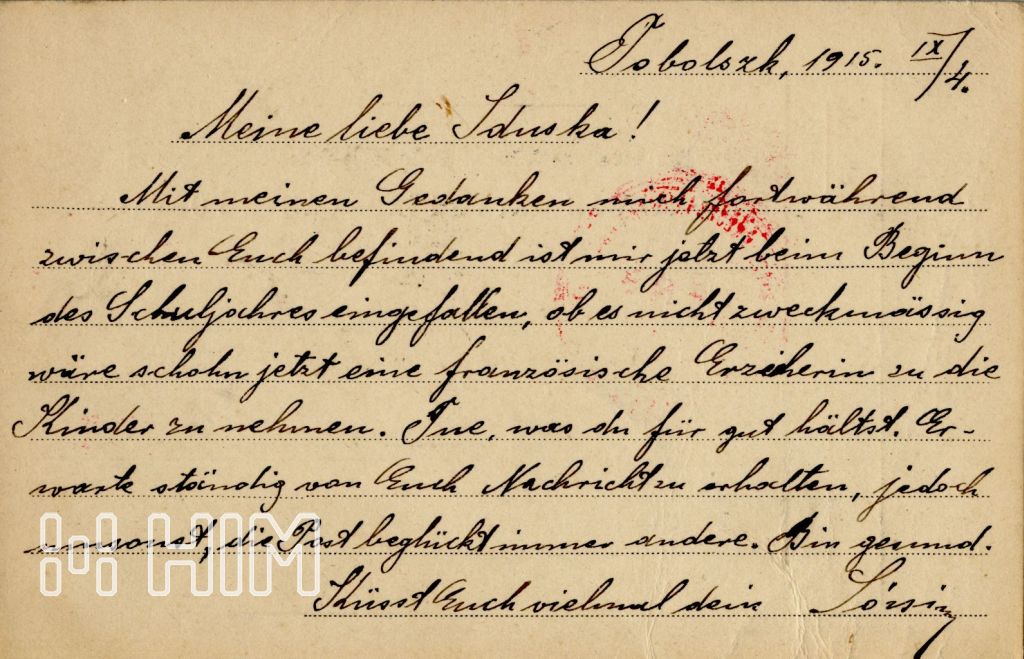 Tobolszk, 1915. IX/4.
Meine liebe Iduska!
Mit meinen Gedanken mich fortwährend
zwischen Euch befindend ist mir jetzt beim Beginn
des Schuljahres eingefallen, ob es nicht zweckmässig
wäre schohn jetzt eine französische Erzieherin zu die
Kinder zu nehmen. Tue, was du für gut hältst. Er-
warte ständig von Euch Nachricht zu erhalten, jedoch
umsonst, die Post beglückt immer andere. Bin gesund.
Küsst Euch viehmal dein
HIM